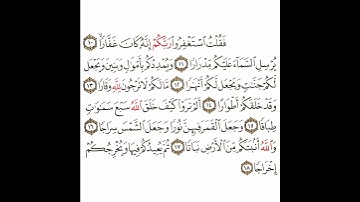 فَقُلْتُ ٱسْتَغْفِرُوا۟ رَبَّكُمْ إِنَّهُۥ كَانَ غَفَّارًا ١٠
يُرْسِلِ ٱلسَّمَآءَ عَلَيْكُم مِّدْرَارًا ١١ وَيُمْدِدْكُم بِأَمْوَٰلٍ وَبَنِينَ وَيَجْعَل
لَّكُمْ جَنَّٰتٍ وَيَجْعَل لَّكُمْ أَنْهَٰرًا ١٢ مَّا لَكُمْ لَا تَرْجُونَ لِلَّهِ وَقَارًا ١٣
وَقَدْ خَلَقَكُمْ أَطْوَارًا ١٤ أَلَمْ تَرَوْا۟ كَيْفَ خَلَقَ ٱللَّهُ سَبْعَ سَمَٰوَٰتٍ
طِبَاقًا ١٥ وَجَعَلَ ٱلْقَمَرَ فِيهِنَّ نُورًا وَجَعَلَ ٱلشَّمْسَ سِرَاجًا ١٦
وَٱللَّهُ أَنۢبَتَكُم مِّنَ ٱلْأَرْضِ نَبَاتًا ١٧ ثُمَّ يُعِيدُكُمْ فِيهَا وَيُخْرِجُكُمْ
إِخْرَاجًا ١٨